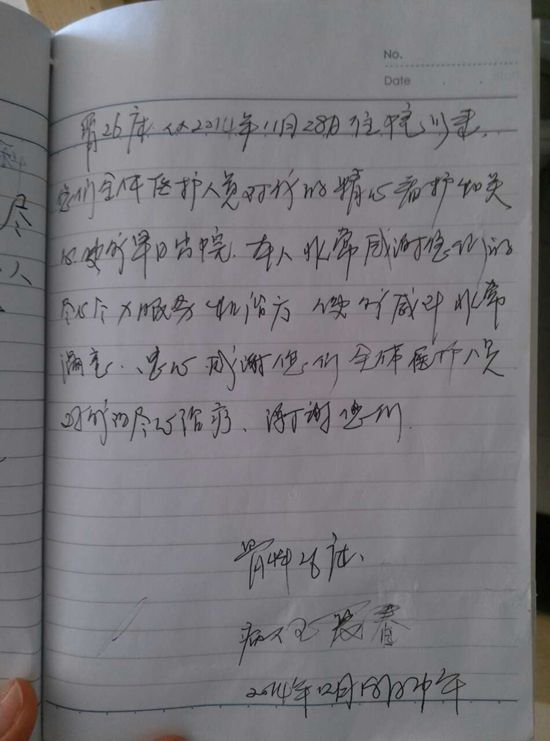 No.
Date
骨26床 从2014年11月28日住院以来,
您们全体医护人员对我的精心看护和关
心使我早日出院. 本人非常感谢您们的
尽心尽力服务和治疗 使我感到非常
满意. 忠心感谢您们全体医护人员
对我的尽心治疗、谢谢您们.
骨科26床、
病人
2014年12月 日 午